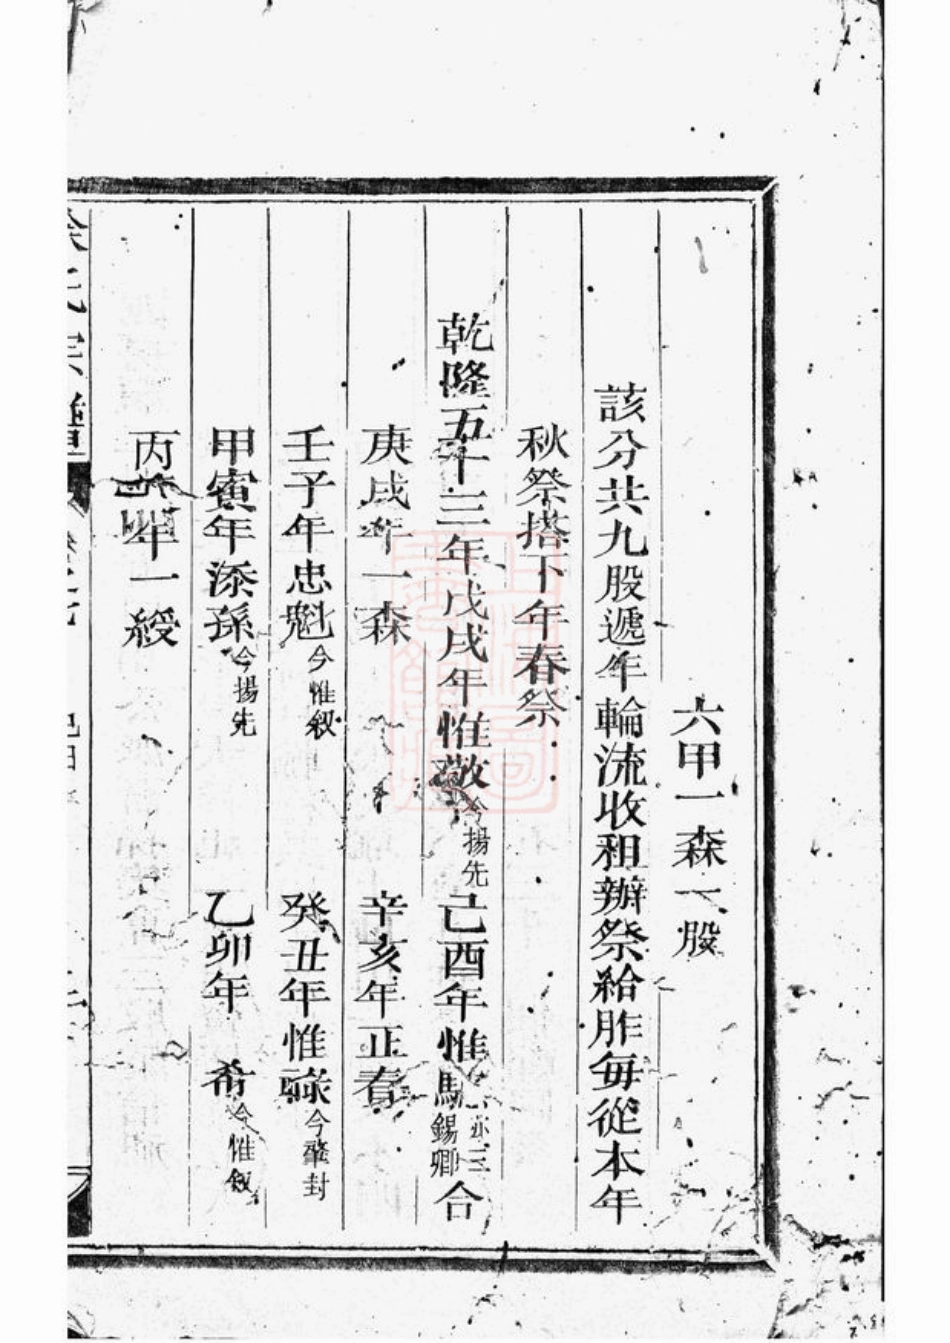 六甲一森一股
該分共九股遞年輪流收租辦祭給胙每從本年
秋祭搭下年春祭
乾隆五十三年戊戌年惟敬今揚先己酉年惟馱亦三錫卿合
庚戌年一森 辛亥年正春
壬子年忠魁今惟叙 癸丑年惟祿今肇封
甲寅年添孫今揚先 乙卯年希今惟叙
丙年一綬
余氏宗譜